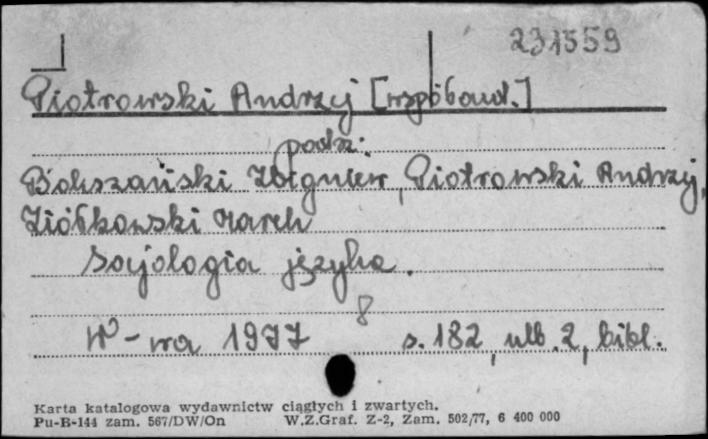 231559
Piotrowski Andrzej [współaut.]
podz:
Bokszański Zbigniew, Piotrowski Andrzej,
Ziółkowski Marek
Socjologia języka.
8
W-wa 1977 s. 182, ulb. 2, bibl.
Karta katalogowa wydawnictw ciągłych i zwartych.
Pu-B-144 zam. 567/DW/On W.Z.Graf. Z-2, Zam. 502/77, 6 400 000